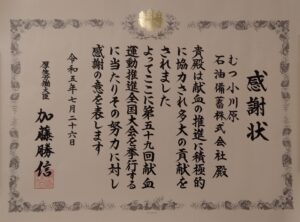 感謝状
むつ小川原
石油備蓄株式会社殿
貴殿は献血の推進に積極的
に協力され多大の貢献を
されました
よってここに第五十九回献血
運動推進全国大会を挙行する
に当たりその努力に対し
感謝の意を表します
令和五年七月二十六日
厚生労働大臣
加藤勝信